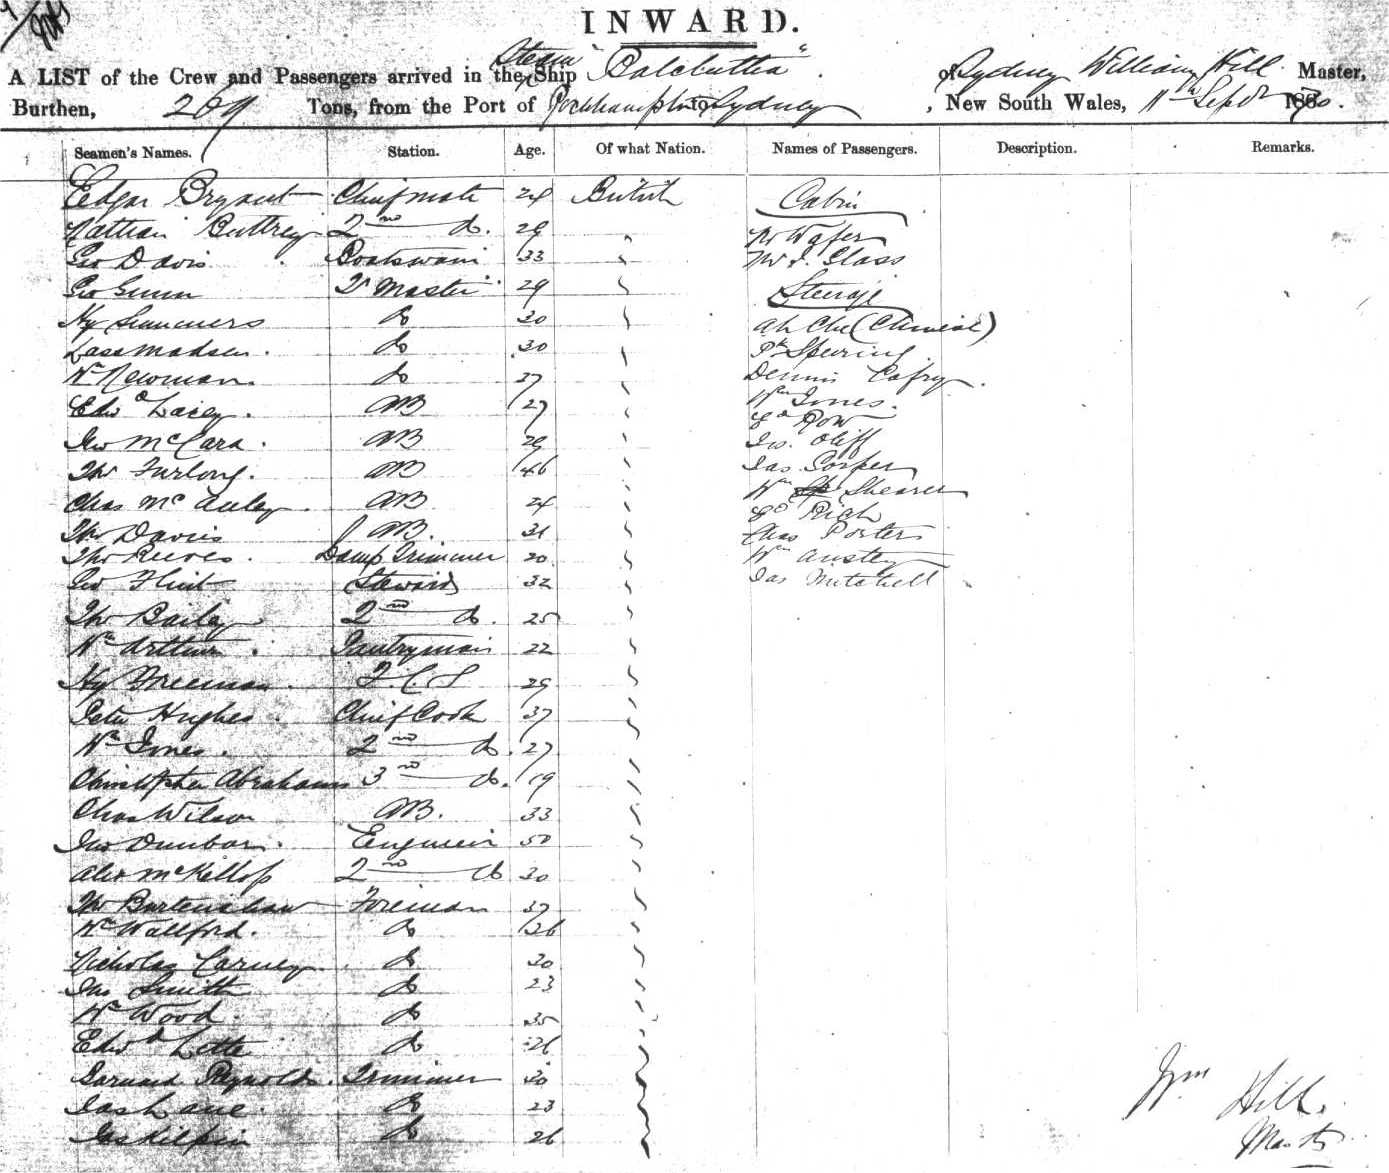 INWARD.
A LIST of the Crew and Passengers arrived in the Steam Ship " " of Sydney William Hill Master,
Burthen, Tons, from the Port of to Sydney, New South Wales, 11th Sepr 1870.
Seamen's Names. Station. Age. Of what Nation. Names of Passengers. Description. Remarks.
Edgar Bryant Chief mate 24 British Cabin
Buttrey 2nd do. 29 Mr Wafer
Geo Davis Boatswain 33 Mr I. Glass
Geo Gunn Qr Master 29 Steerage
Hy Summers do 30 Ah Che (Chinese)
Madsen. do 30 Pk Spearing
Wm Newman. do 37 Dennis
Edwd Lacey. AB 27 Wm Jones.
Jno McCara. AB 29 Ed Row
Thos Furlong. AB 46 Jos. Oliff
Chas McAuley. AB 24 Jas
Thos Davis AB. 31 Wm Shearer
Thos Reeves. Lamp Trimmer 20 Ed Rich
Geo Flint Steward 32 Chas Porter
Thos Bailey 2nd do. 25 Wm Anstey
Wm Arthur. Pantryman 22 Jas Mitchell
Hy Freeman. F.C.S 29
Peter Hughes. Chief Cook 37
Wm Jones. 2nd do. 27
Christopher Abrahams 3rd do. 19
Chas Wilson AB. 33
Jno Dunbar. Engineer 50
Alex McKillop 2nd do 30
Thos Burtenshaw Foreman 37
Wm Wallford. do 36
Nicholas Carney. do 30
Jno Smith do 23
Wm Wood. do 35
Edwd do 26
Reynolds. Trimmer 20
Jas Lane. do 23
Jas Kilpin do 26
Wm Hill.
Master